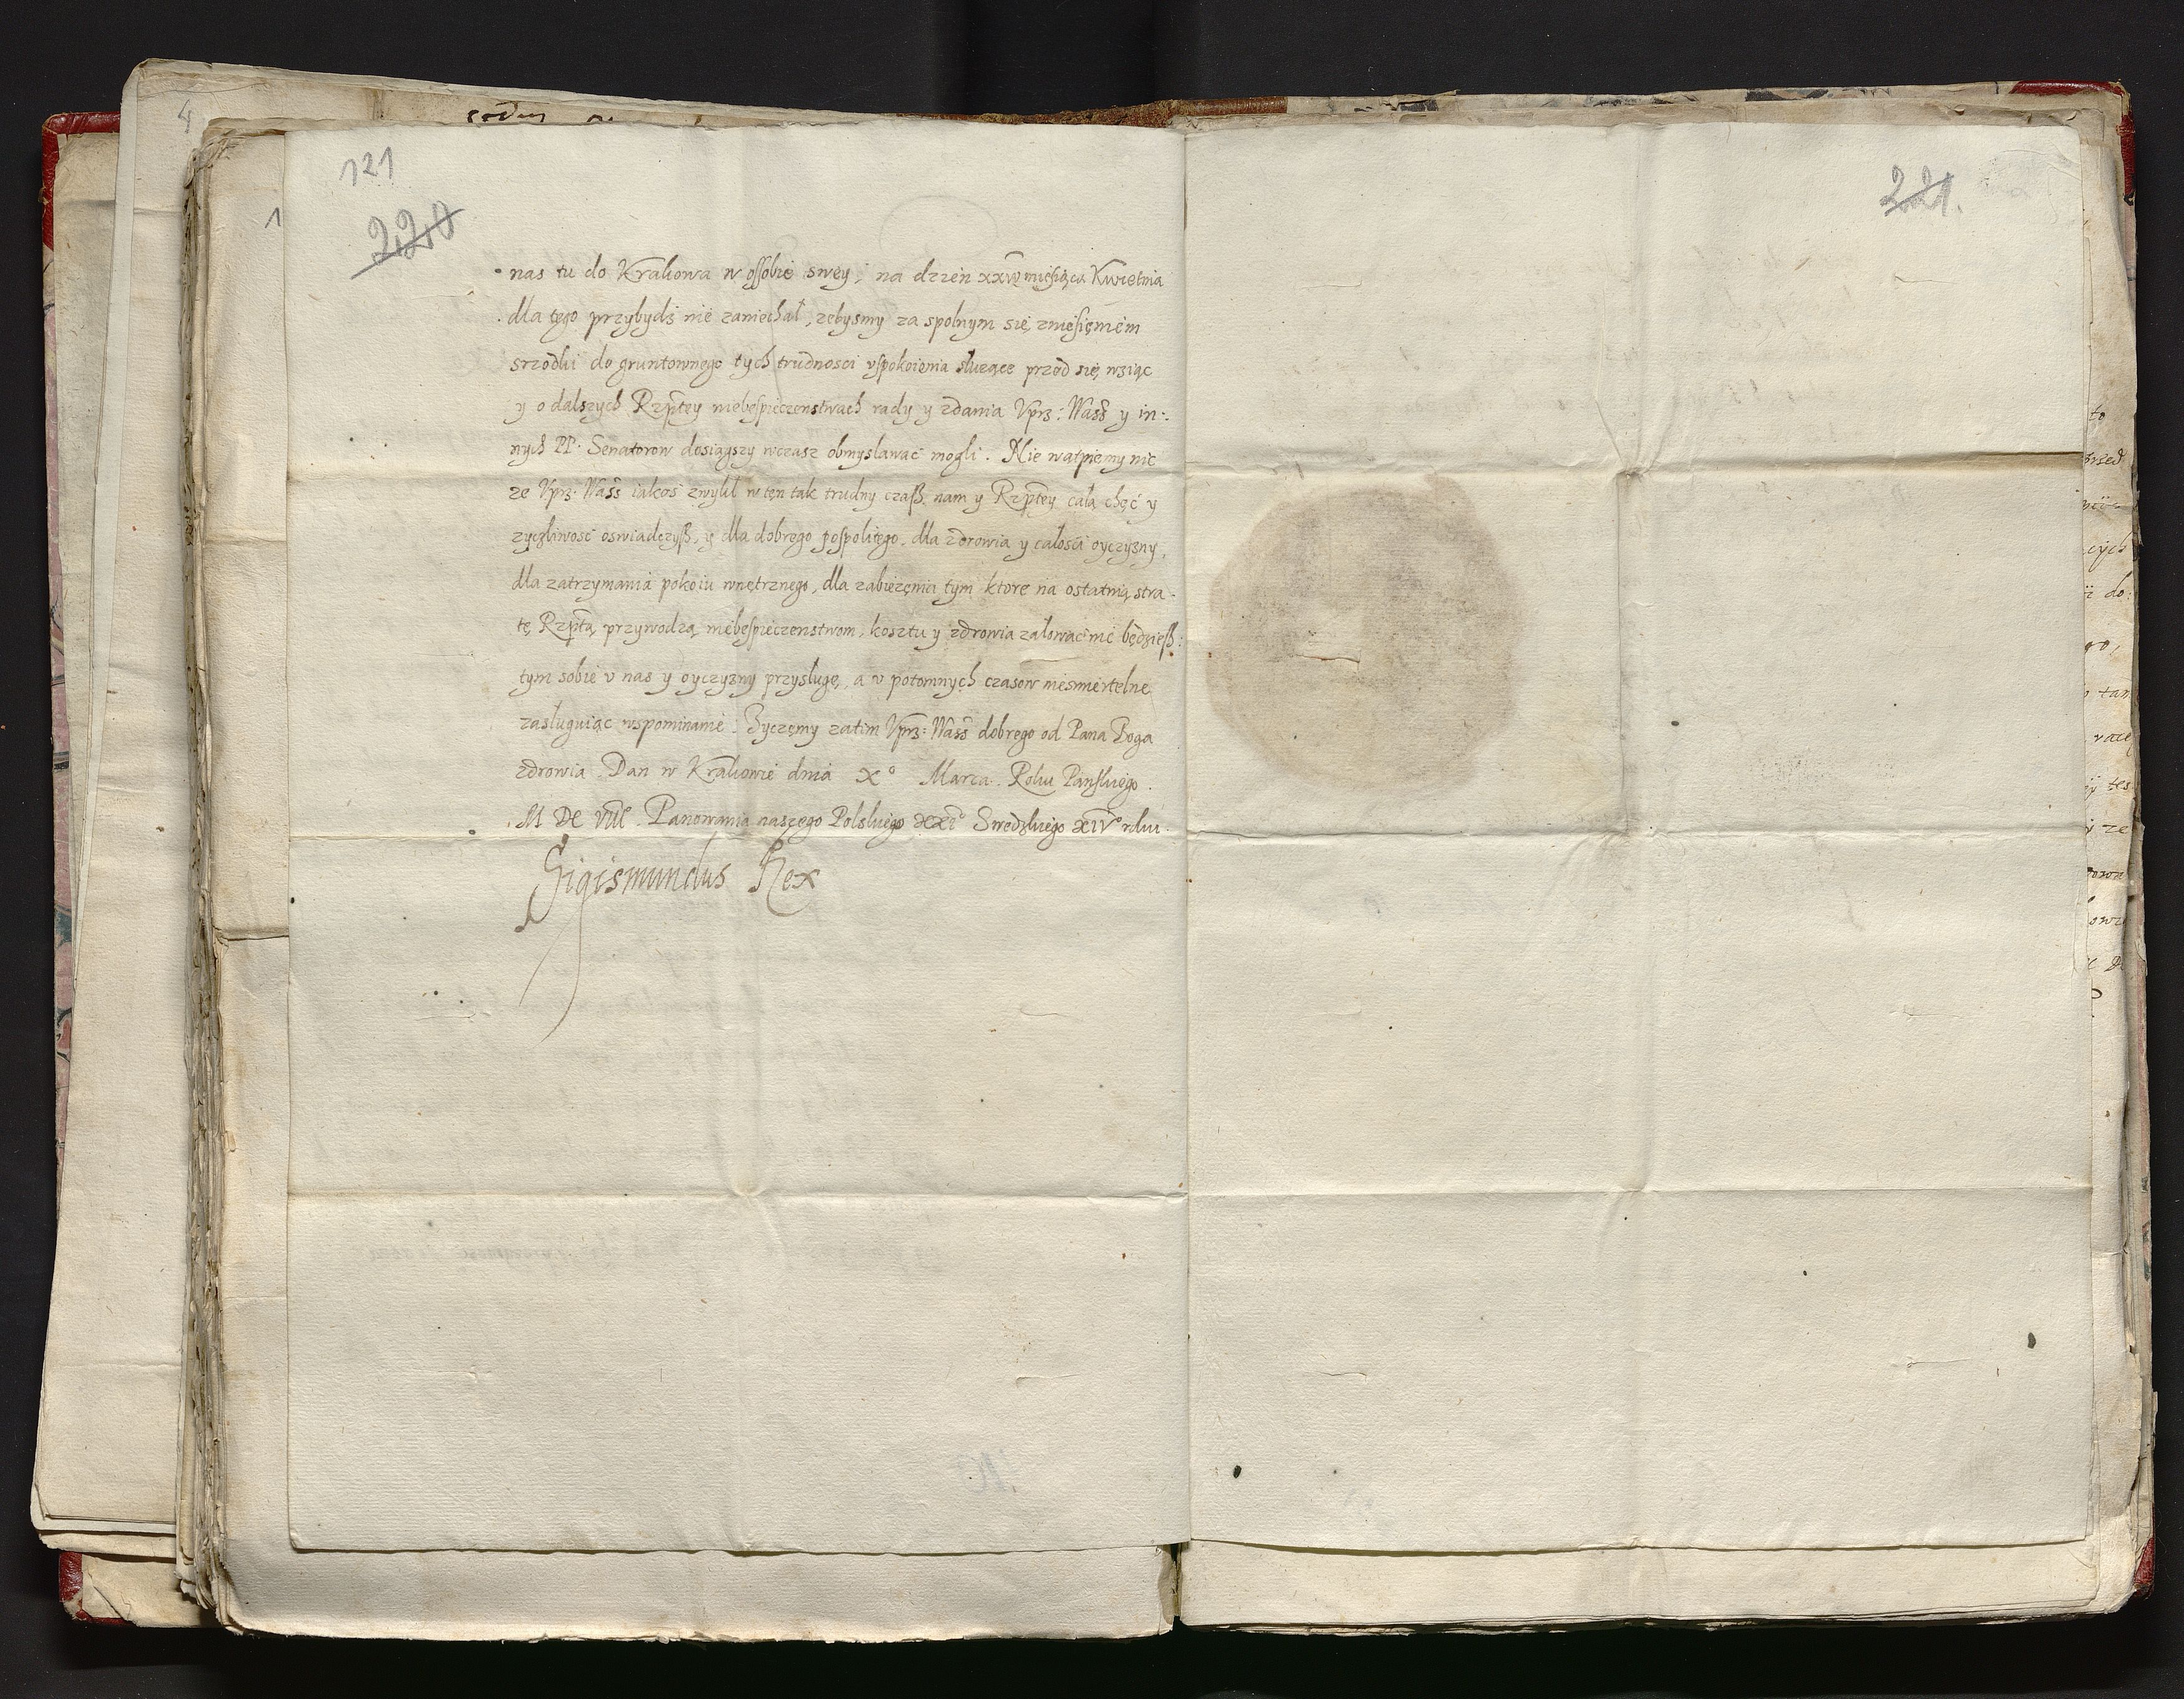 121
220
nas tu do Krakowa w ossobie swey, na dzien miesiąca Kwietnia
dla tego przybydź nie zaniechał, zebysmy za spolnym się zniesięniem
srzodki do gruntownego tych trudnosci vspokoienia słuzące przed się wziąc
y o dalszych Rzptey niebespieczenstwach rady y zdania Vprz: Wass y in:
nych PP. Senatorow dosiągszy wczasz obmyslawać mogli. Nie wątpiemy nic
ze Vprz: Wass iakoś zwykł w tęn tak trudny czaß, nam y Rzptey całą chęć y
zyczliwość oswiadczyß, y dla dobrego pospolitego, dla zdrowia y całości oyczyzny,
dla zatrzymania pokoiu wnętrznego, dla zabiezęnia tym ktore na ostatnią stra-
tę Rzptą przywodzą niebespieczenstwom, kosztu y zdrowia załowac nie będzieß:
tym sobie v nas y oyczyzny przysługę, a v potomnych czasow niesmiertelne
zasługuiąc wspominanie. Zyczęmy zatim Vprz: Wass dobrego od Pana Boga
zdrowia. Dan w Krakowie dnia X° Marca. Roku Panskiego.
M DC VIII. Panowania naszego Polskiego Swedzkiego XIV° roku.
Sigismundus Rex
221.
4
1